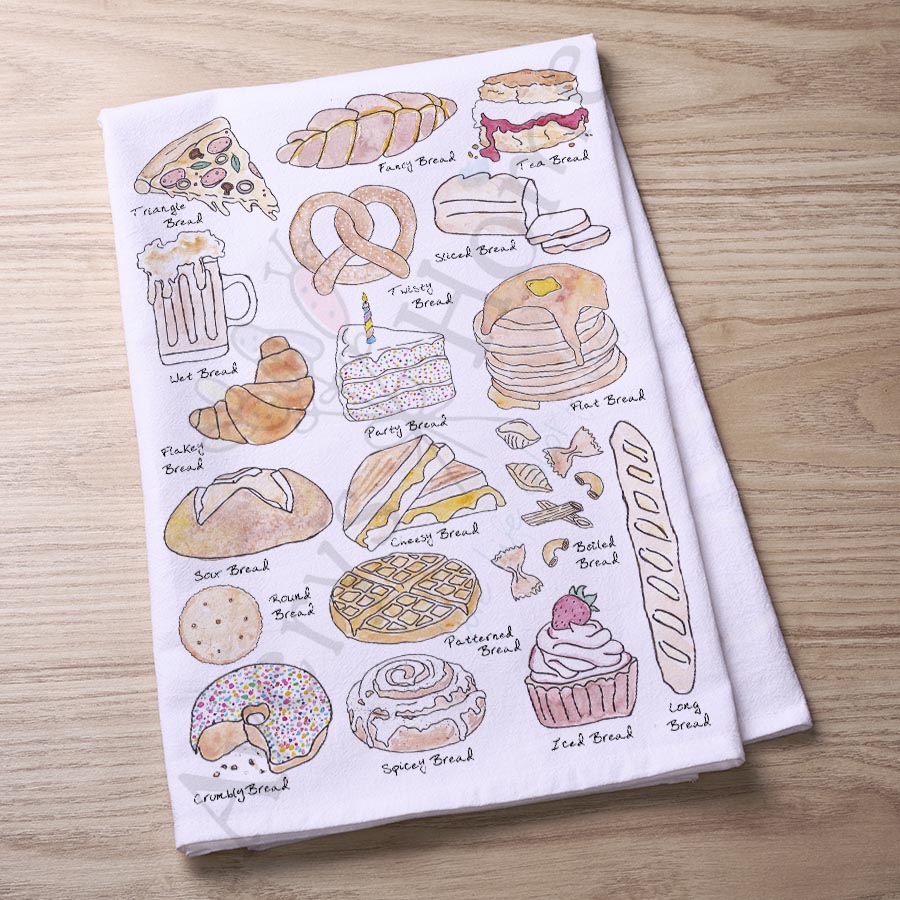 Fancy Bread
Tea Bread
Triangle
Bread
Sliced Bread
Twisty
Bread
Wet Bread
Party Bread
Flat Bread
Flakey
Bread
Cheesy Bread
Boiled
Bread
Sour Bread
Round
Bread
Patterned
Bread
Long
Bread
Iced Bread
Spicey Bread
Crumbly Bread